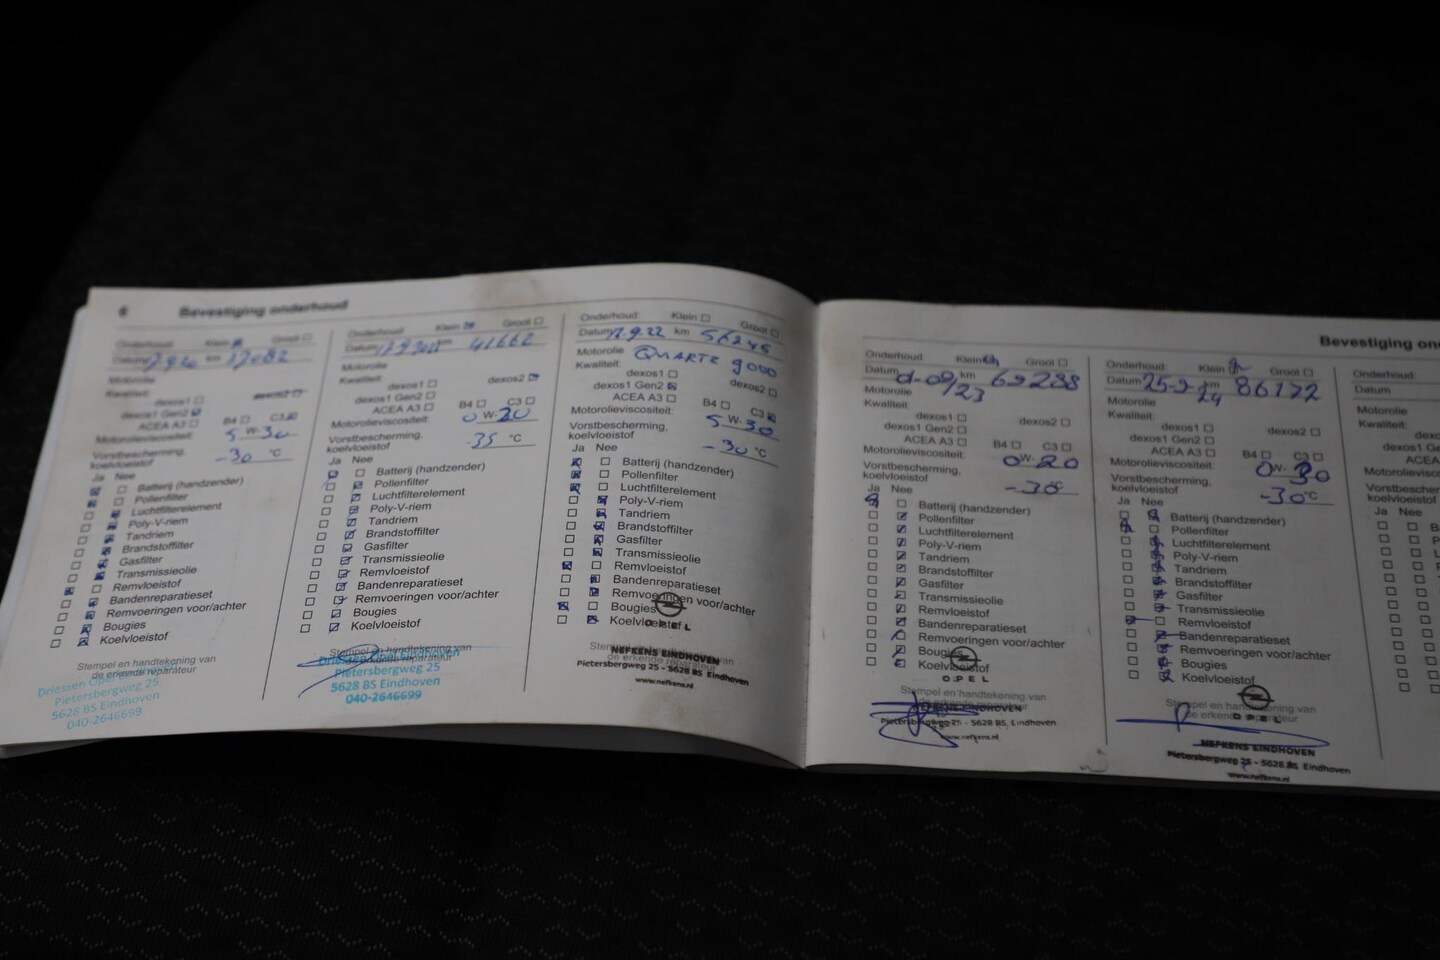 6 Bevestiging onderhoud
Onderhoud: Klein Groot
Datum km
Motorolie
Kwaliteit:
dexos1 dexos2
dexos1 Gen2
ACEA A3 B4 C3
Motorolieviscositeit: 5 W- 30
Vorstbescherming,
koelvloeistof -30 °C
Ja Nee
Batterij (handzender)
Pollenfilter
Luchtfilterelement
Poly-V-riem
Tandriem
Brandstoffilter
Gasfilter
Transmissieolie
Remvloeistof
Bandenreparatieset
Remvoeringen voor/achter
Bougies
Koelvloeistof
Stempel en handtekening van
de erkende reparateur
Driessen Opel
Pietersbergweg 25
5628 BS Eindhoven
040-2646699
Onderhoud: Klein Groot
Datum km 41662
Motorolie
Kwaliteit:
dexos1 dexos2
dexos1 Gen2
ACEA A3 B4 C3
Motorolieviscositeit: 0 W- 20
Vorstbescherming,
koelvloeistof -35 °C
Ja Nee
Batterij (handzender)
Pollenfilter
Luchtfilterelement
Poly-V-riem
Tandriem
Brandstoffilter
Gasfilter
Transmissieolie
Remvloeistof
Bandenreparatieset
Remvoeringen voor/achter
Bougies
Koelvloeistof
Stempel en handtekening van
de erkende reparateur
Driessen Opel Eindhoven
Pietersbergweg 25
5628 BS Eindhoven
040-2646699
Onderhoud: Klein Groot
Datum 7.9.22 km 56245
Motorolie QUARTZ 9000
Kwaliteit:
dexos1 dexos2
dexos1 Gen2
ACEA A3 B4 C3
Motorolieviscositeit: 5 W- 30
Vorstbescherming,
koelvloeistof -30 °C
Ja Nee
Batterij (handzender)
Pollenfilter
Luchtfilterelement
Poly-V-riem
Tandriem
Brandstoffilter
Gasfilter
Transmissieolie
Remvloeistof
Bandenreparatieset
Remvoeringen voor/achter
Bougies
Koelvloeistof
OPEL
Stempel en handtekening van
de erkende reparateur
NEFKENS EINDHOVEN
Pietersbergweg 25 - 5628 BS Eindhoven
www.nefkens.nl
Bevestiging on
Onderhoud: Klein Groot
Datum km 69288
Motorolie
Kwaliteit:
dexos1 dexos2
dexos1 Gen2
ACEA A3 B4 C3
Motorolieviscositeit: 0 W- 20
Vorstbescherming,
koelvloeistof -30 °C
Ja Nee
Batterij (handzender)
Pollenfilter
Luchtfilterelement
Poly-V-riem
Tandriem
Brandstoffilter
Gasfilter
Transmissieolie
Remvloeistof
Bandenreparatieset
Remvoeringen voor/achter
Bougies
Koelvloeistof
OPEL
Stempel en handtekening van
de erkende reparateur
NEFKENS EINDHOVEN
Pietersbergweg 25 - 5628 BS, Eindhoven
www.nefkens.nl
Onderhoud: Klein Groot
Datum 25-9-24 km 86172
Motorolie
Kwaliteit:
dexos1 dexos2
dexos1 Gen2
ACEA A3 B4 C3
Motorolieviscositeit: 0 W-
Vorstbescherming,
koelvloeistof -30 °C
Ja Nee
Batterij (handzender)
Pollenfilter
Luchtfilterelement
Poly-V-riem
Tandriem
Brandstoffilter
Gasfilter
Transmissieolie
Remvloeistof
Bandenreparatieset
Remvoeringen voor/achter
Bougies
Koelvloeistof
OPEL
Stempel en handtekening van
de erkende reparateur
NEFKENS EINDHOVEN
Pietersbergweg 25 - 5628 BS Eindhoven
www.nefkens.nl
Onderhoud:
Datum
Motorolie
Kwaliteit:
dexo
dexos1 G
ACEA
Motorolievisco
Vorstbescher
koelvloeistof
Ja Nee